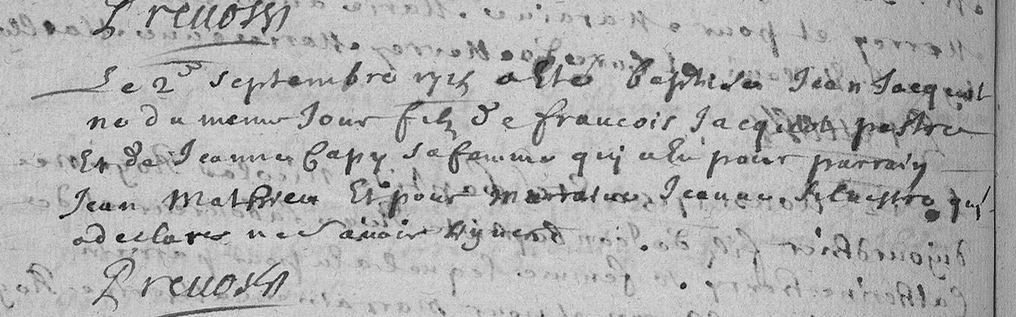 Prevost
Le 2e Septembre 1715 a este baptisé Jean Jacquot
né du meme Jour filz de francois Jacquot pastre
Et de Jeanne Capy sa femme qui a Eu pour parrain
Jean Mathieu Et pour marraine Jeanne Silvestre qui
a declarer ne Scavoir Signer
Prevost